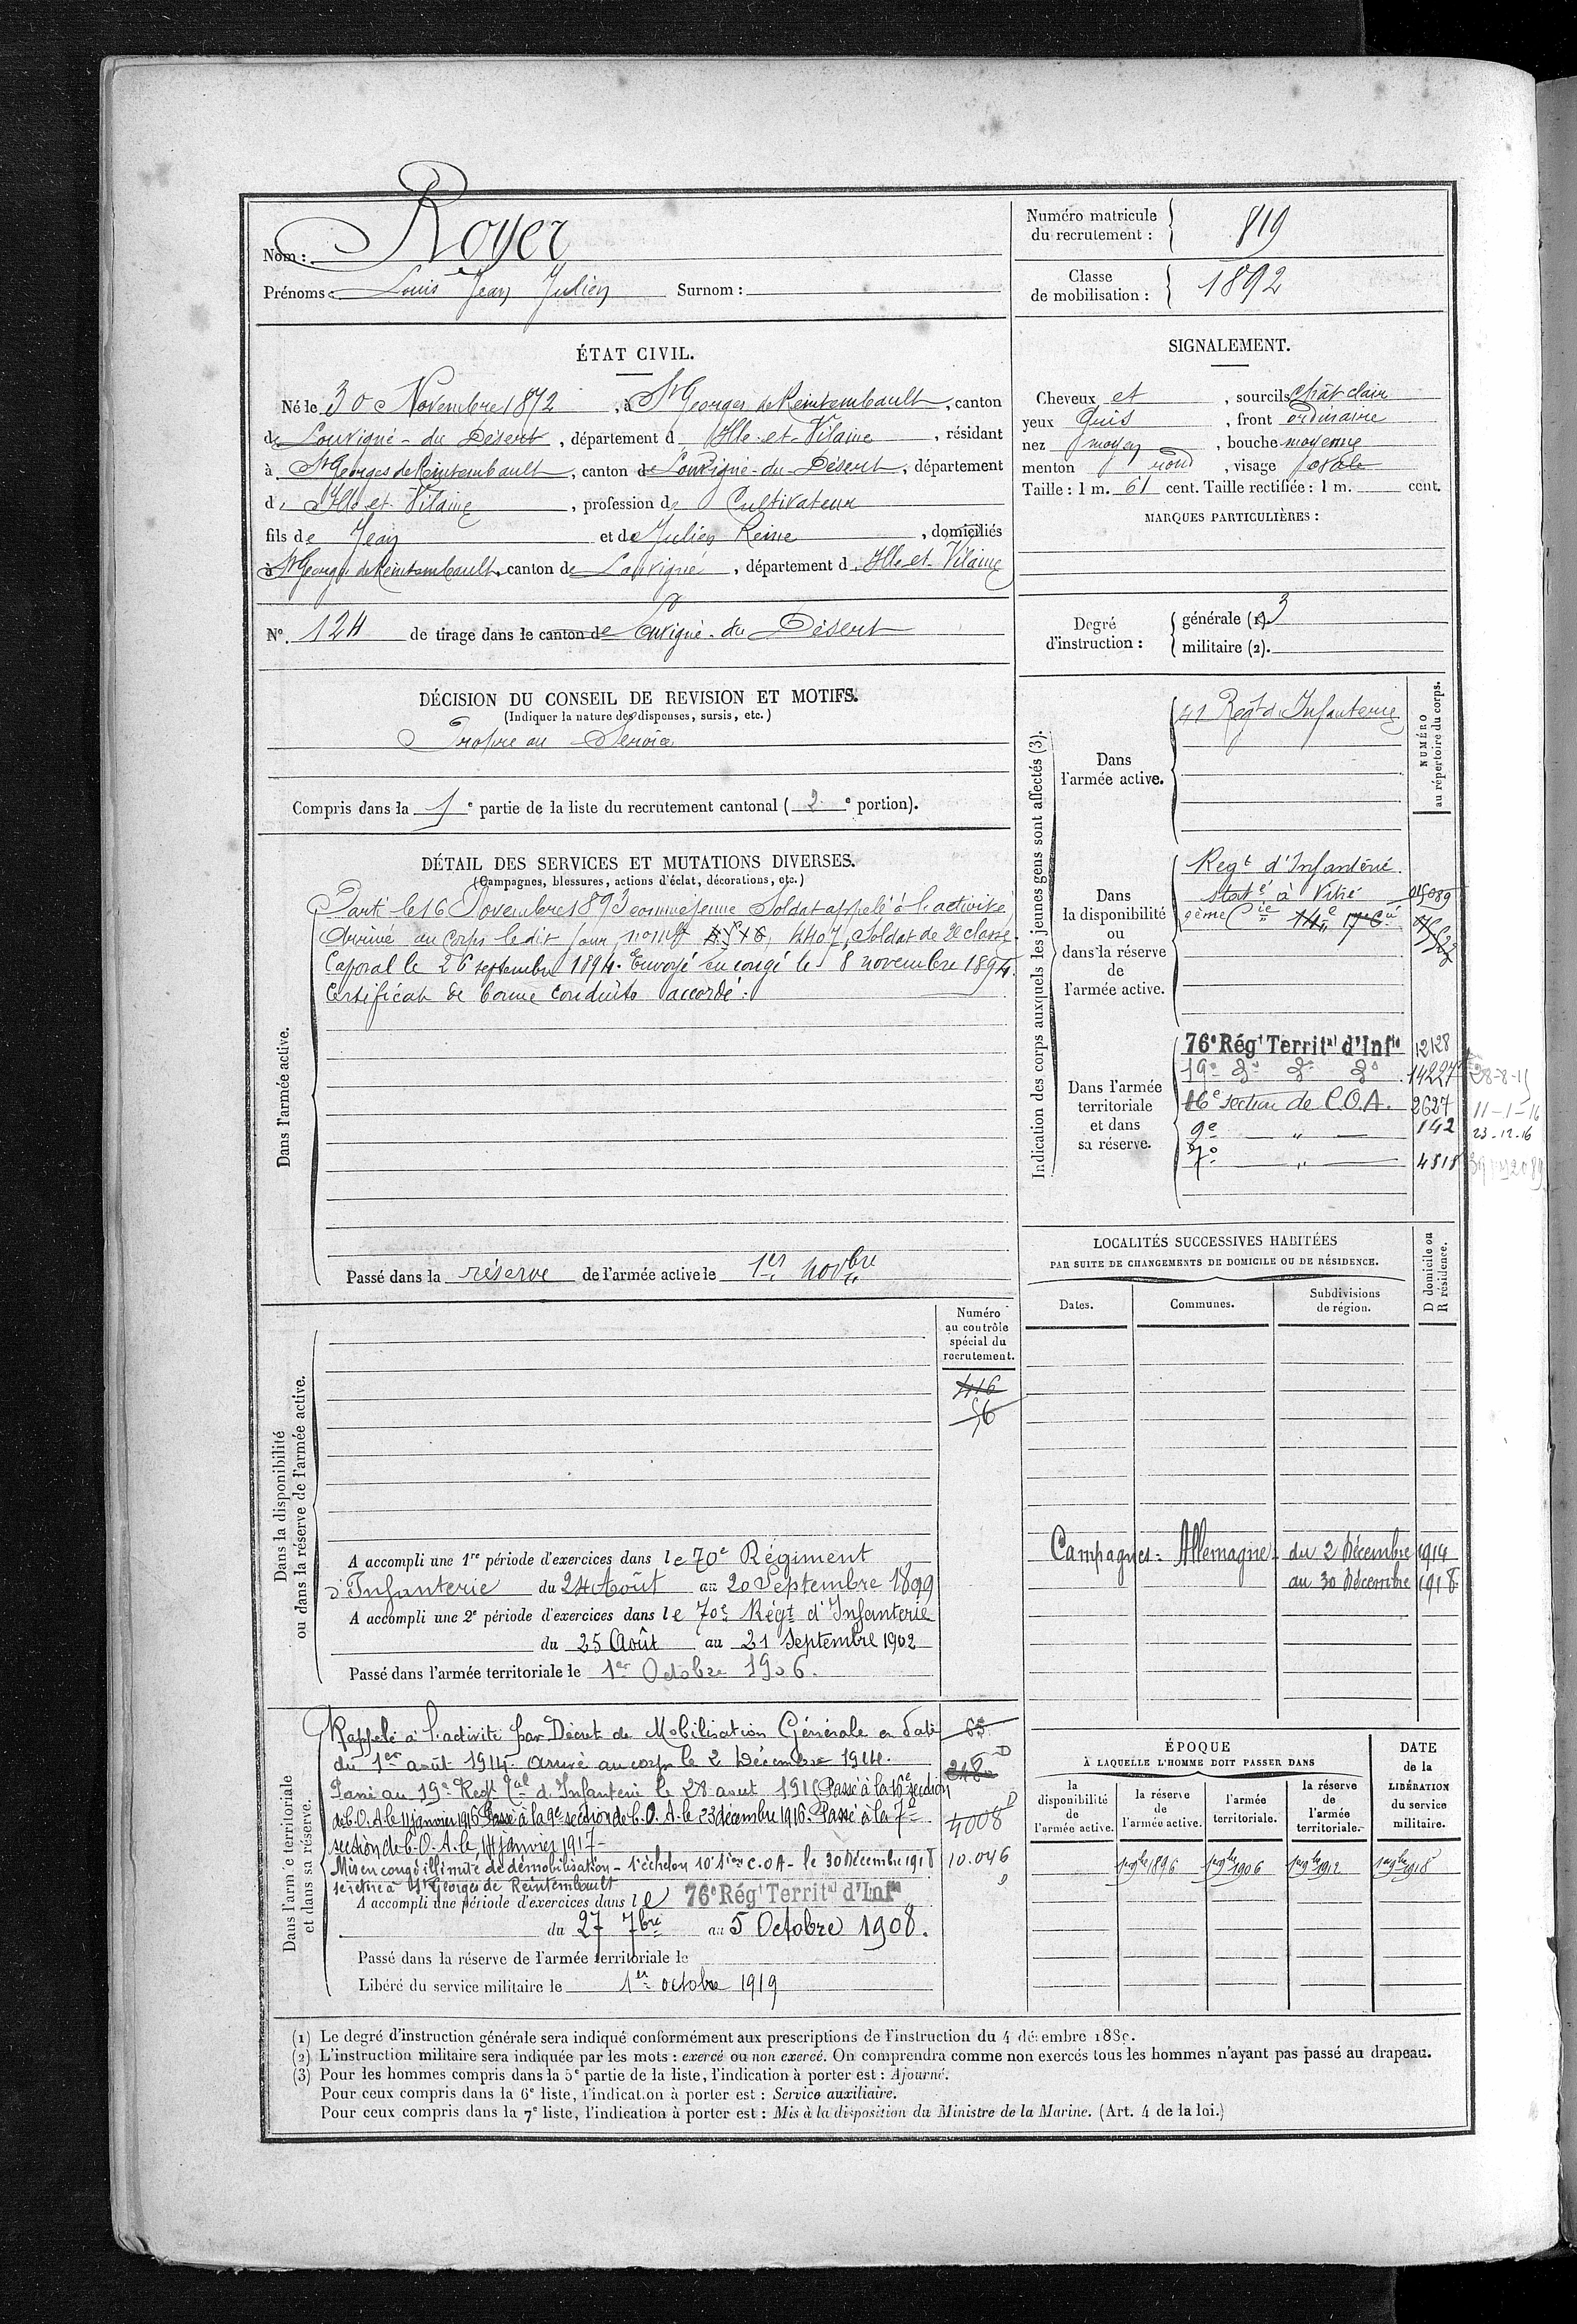 Nom : Royer
Prénoms : Louis Jean Julien Surnom :
Numéro matricule du recrutement : 819
Classe de mobilisation : 1892
ÉTAT CIVIL.
Né le 30 Novembre 1872, à St Georges de Reintembault, canton
de Louvigné-du-Désert, département d Ille-et-Vilaine, résidant
à St Georges de Reintembault, canton de Louvigné-du-Désert, département
d Ille et Vilaine, profession de Cultivateur
fils de Jean et de Julien Reine, domiciliés
à St Georges de Reintembault, canton de Louvigné, département d Ille-et-Vilaine
N° 124 de tirage dans le canton de Louvigné-du Désert
SIGNALEMENT.
Cheveux et, sourcils chât clair
yeux Gris, front ordinaire
nez moyen, bouche moyenne
menton rond, visage ovale
Taille : 1 m. 61 cent. Taille rectifiée : 1 m. cent.
MARQUES PARTICULIÈRES :
Degré d'instruction :
générale (1). 3
militaire (2).
DÉCISION DU CONSEIL DE REVISION ET MOTIFS.
(Indiquer la nature des dispenses, sursis, etc.)
Propre au Service
Compris dans la 1e partie de la liste du recrutement cantonal (2e portion).
DÉTAIL DES SERVICES ET MUTATIONS DIVERSES.
(Campagnes, blessures, actions d'éclat, décorations, etc.)
Dans l'armée active.
Parti le 16 Novembre 1893 comme jeune Soldat appelé à l'activité
Arrivé au Corps le dit jour, 4407, Soldat de 2e classe.
Caporal le 26 septembre 1894. Envoyé en congé le 8 novembre 1894.
Certificat de bonne conduite accordé.
Passé dans la réserve de l'armée active le 1er novbre
Indication des corps auxquels les jeunes gens sont affectés (3).
NUMÉRO au répertoire du corps.
Dans l'armée active.
41 Régt d'Infanterie
Dans la disponibilité ou dans la réserve de l'armée active.
Regt d'Infanterie
statné à Vitré
9ème Cie
Dans l'armée territoriale et dans sa réserve.
76e Régt Territal d'Infie 12128
19e do do do 14227 28-8-15
16e section de C.O.A. 2627 11-1-16
9e " 142 23-12-16
7e " 4818
LOCALITÉS SUCCESSIVES HABITÉES
PAR SUITE DE CHANGEMENTS DE DOMICILE OU DE RÉSIDENCE.
Dates. Communes. Subdivisions de région. D domicile ou R résidence.
Campagnes : Allemagne du 2 Décembre 1914
au 30 Décembre 1918
Dans la disponibilité ou dans la réserve de l'armée active.
Numéro au contrôle spécial du recrutement.
416
56
A accompli une 1re période d'exercices dans le 70e Régiment
d'Infanterie du 24 Août au 20 Septembre 1899
A accompli une 2e période d'exercices dans le 70e Régt d'Infanterie
du 25 Août au 21 Septembre 1902
Passé dans l'armée territoriale le 1er Octobre 1906.
Dans l'armée territoriale et dans sa réserve.
Rappelé à l'activité par Décret de Mobilisation Générale en date
du 1er août 1914. Arrivé au corps le 2 Décembre 1914.
Passé au 19e Regt Tal d'Infanterie le 28 août 1915 Passé à la 16e section
de C.O.A. le 11 janvier 1916 Passé à la 9e section de C.O.A. le 23 décembre 1916. Passé à la 7e
section de C.O.A. le janvier 1917.
Mis en congé illimité de démobilisation - 1er échelon 10e Son C.O.A - le 30 Décembre 1918
se retire à St Georges de Reintembault
4008
10.046
A accompli une période d'exercices dans le 76e Régt Territal d'Infie
du 27 7bre au 5 Octobre 1908.
Passé dans la réserve de l'armée territoriale le
Libéré du service militaire le 1er octobre 1919
ÉPOQUE
À LAQUELLE L'HOMME DOIT PASSER DANS
la disponibilité de l'armée active. la réserve de l'armée active. l'armée territoriale. la réserve de l'armée territoriale.
DATE de la LIBÉRATION du service militaire.
1896 1906 1912 1918
(1) Le degré d'instruction générale sera indiqué conformément aux prescriptions de l'instruction du 4 décembre 1889.
(2) L'instruction militaire sera indiquée par les mots : exercé ou non exercé. On comprendra comme non exercés tous les hommes n'ayant pas passé au drapeau.
(3) Pour les hommes compris dans la 5e partie de la liste, l'indication à porter est : Ajourné.
Pour ceux compris dans la 6e liste, l'indication à porter est : Service auxiliaire.
Pour ceux compris dans la 7e liste, l'indication à porter est : Mis à la disposition du Ministre de la Marine. (Art. 4 de la loi.)